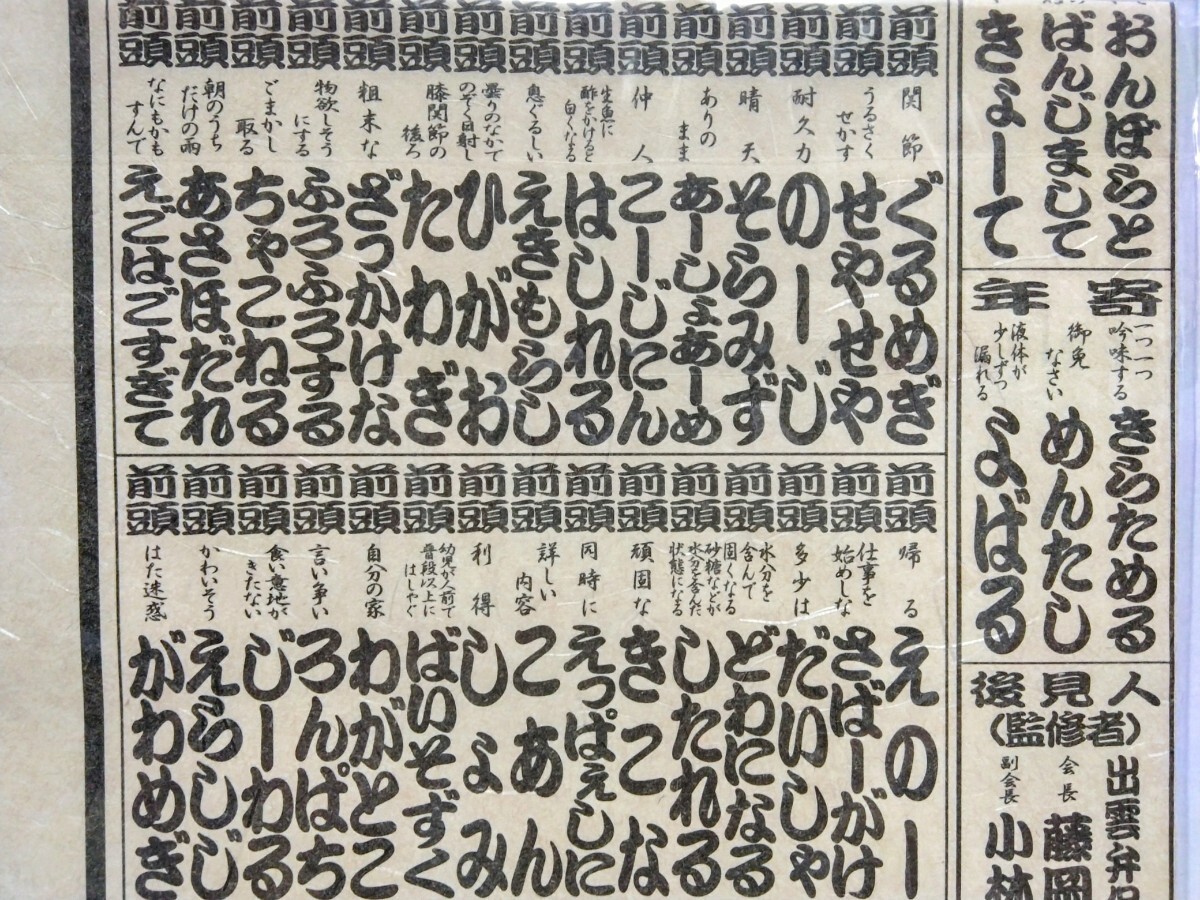 おんぼらと
ばんじまして
きょーて
寄年
一つ一つ吟味する
きらためる
御免なさい
めんたし
液体が少しずつ漏れる
よばる
後見人
(監修者)
出雲弁保
会長 藤岡
副会長 小林
前頭 関節 ぐるめぎ
前頭 うるさくせかす せやせや
前頭 耐久力 のーじ
前頭 晴天 そらみず
前頭 ありのまま あーしょあーめ
前頭 仲人 こーじにん
前頭 生魚に酢をかけると白くなる はしれる
前頭 息ぐるしい えきもらし
前頭 曇りのなかでのぞく日射し ひがお
前頭 膝関節の後ろ たわぎ
前頭 粗末な ざっかけな
前頭 物欲しそうにする ふろふろする
前頭 ごまかし取る ちゃこねる
前頭 朝のうちだけの雨 あさほだれ
前頭 なにもかもすんで えごはごすぎて
前頭 帰る えのー
前頭 仕事を始めしな さばーがけ
前頭 多少は だいしゃ
前頭 水分を含んで固くなる どわになる
前頭 砂糖などが水分を含んだ状態になる したれる
前頭 頑固な きこな
前頭 同時に えっぱえしに
前頭 詳しい内容 こあん
前頭 利得 しょみ
前頭 幼児が人前で普段以上にはしゃぐ ばいそずく
前頭 自分の家 わがとこ
前頭 言い争い ろんぱち
前頭 食い意地がきたない じーわる
前頭 かわいそう えらしじ
前頭 はた迷惑 がわめぎ